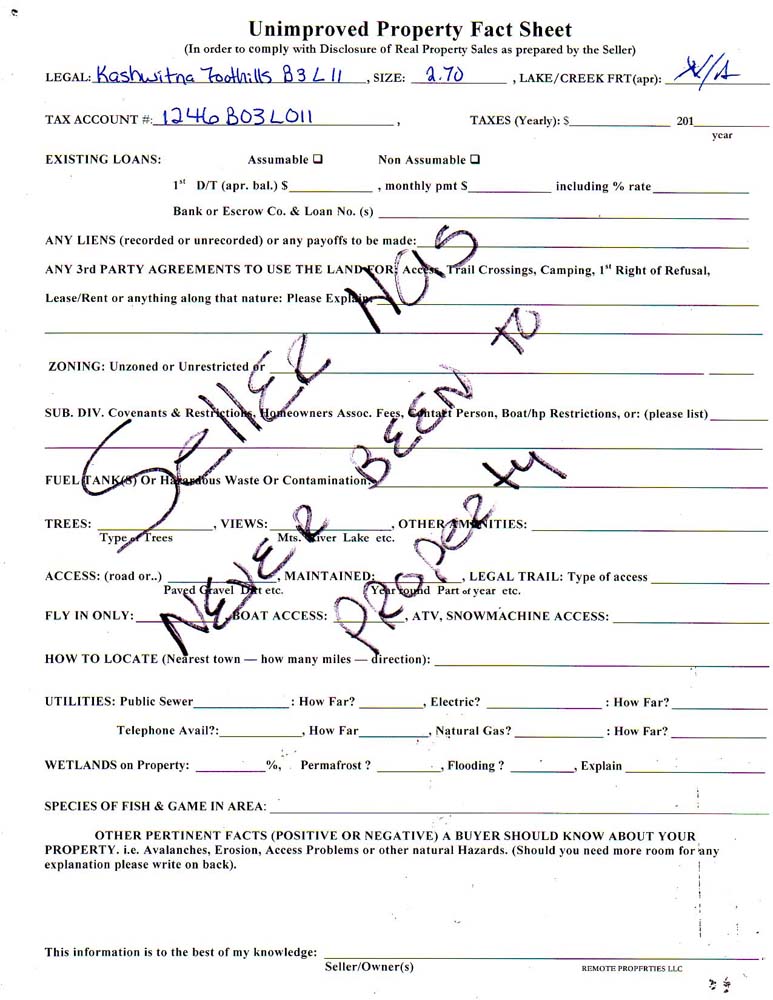 Unimproved Property Fact Sheet
(In order to comply with Disclosure of Real Property Sales as prepared by the Seller)
LEGAL: Kashwitna Foothills B3 L11, SIZE: 2.70, LAKE/CREEK FRT(apr): N/A
TAX ACCOUNT #: 1246B03L011, TAXES (Yearly): $ 201
year
EXISTING LOANS: Assumable ❑ Non Assumable ❑
1st D/T (apr. bal.) $ , monthly pmt $ including % rate
Bank or Escrow Co. & Loan No. (s)
ANY LIENS (recorded or unrecorded) or any payoffs to be made:
ANY 3rd PARTY AGREEMENTS TO USE THE LAND FOR: Access, Trail Crossings, Camping, 1st Right of Refusal,
Lease/Rent or anything along that nature: Please Explain:
ZONING: Unzoned or Unrestricted or
SUB. DIV. Covenants & Restrictions, Homeowners Assoc. Fees, Contact Person, Boat/hp Restrictions, or: (please list)
FUEL TANK(S) Or Hazardous Waste Or Contamination:
TREES: , VIEWS: , OTHER AMNITIES:
Type of Trees Mts. River Lake etc.
ACCESS: (road or..) , MAINTAINED: , LEGAL TRAIL: Type of access
Paved Gravel Dirt etc. Year round Part of year etc.
FLY IN ONLY: , BOAT ACCESS: , ATV, SNOWMACHINE ACCESS:
HOW TO LOCATE (Nearest town — how many miles — direction):
UTILITIES: Public Sewer : How Far? , Electric? : How Far?
Telephone Avail?: , How Far , Natural Gas? : How Far?
WETLANDS on Property: %, Permafrost ? , Flooding ? , Explain
SPECIES OF FISH & GAME IN AREA:
OTHER PERTINENT FACTS (POSITIVE OR NEGATIVE) A BUYER SHOULD KNOW ABOUT YOUR
PROPERTY. i.e. Avalanches, Erosion, Access Problems or other natural Hazards. (Should you need more room for any
explanation please write on back).
This information is to the best of my knowledge:
Seller/Owner(s)
REMOTE PROPERTIES LLC
SELLER HAS
NEVER BEEN TO
PROPERTY